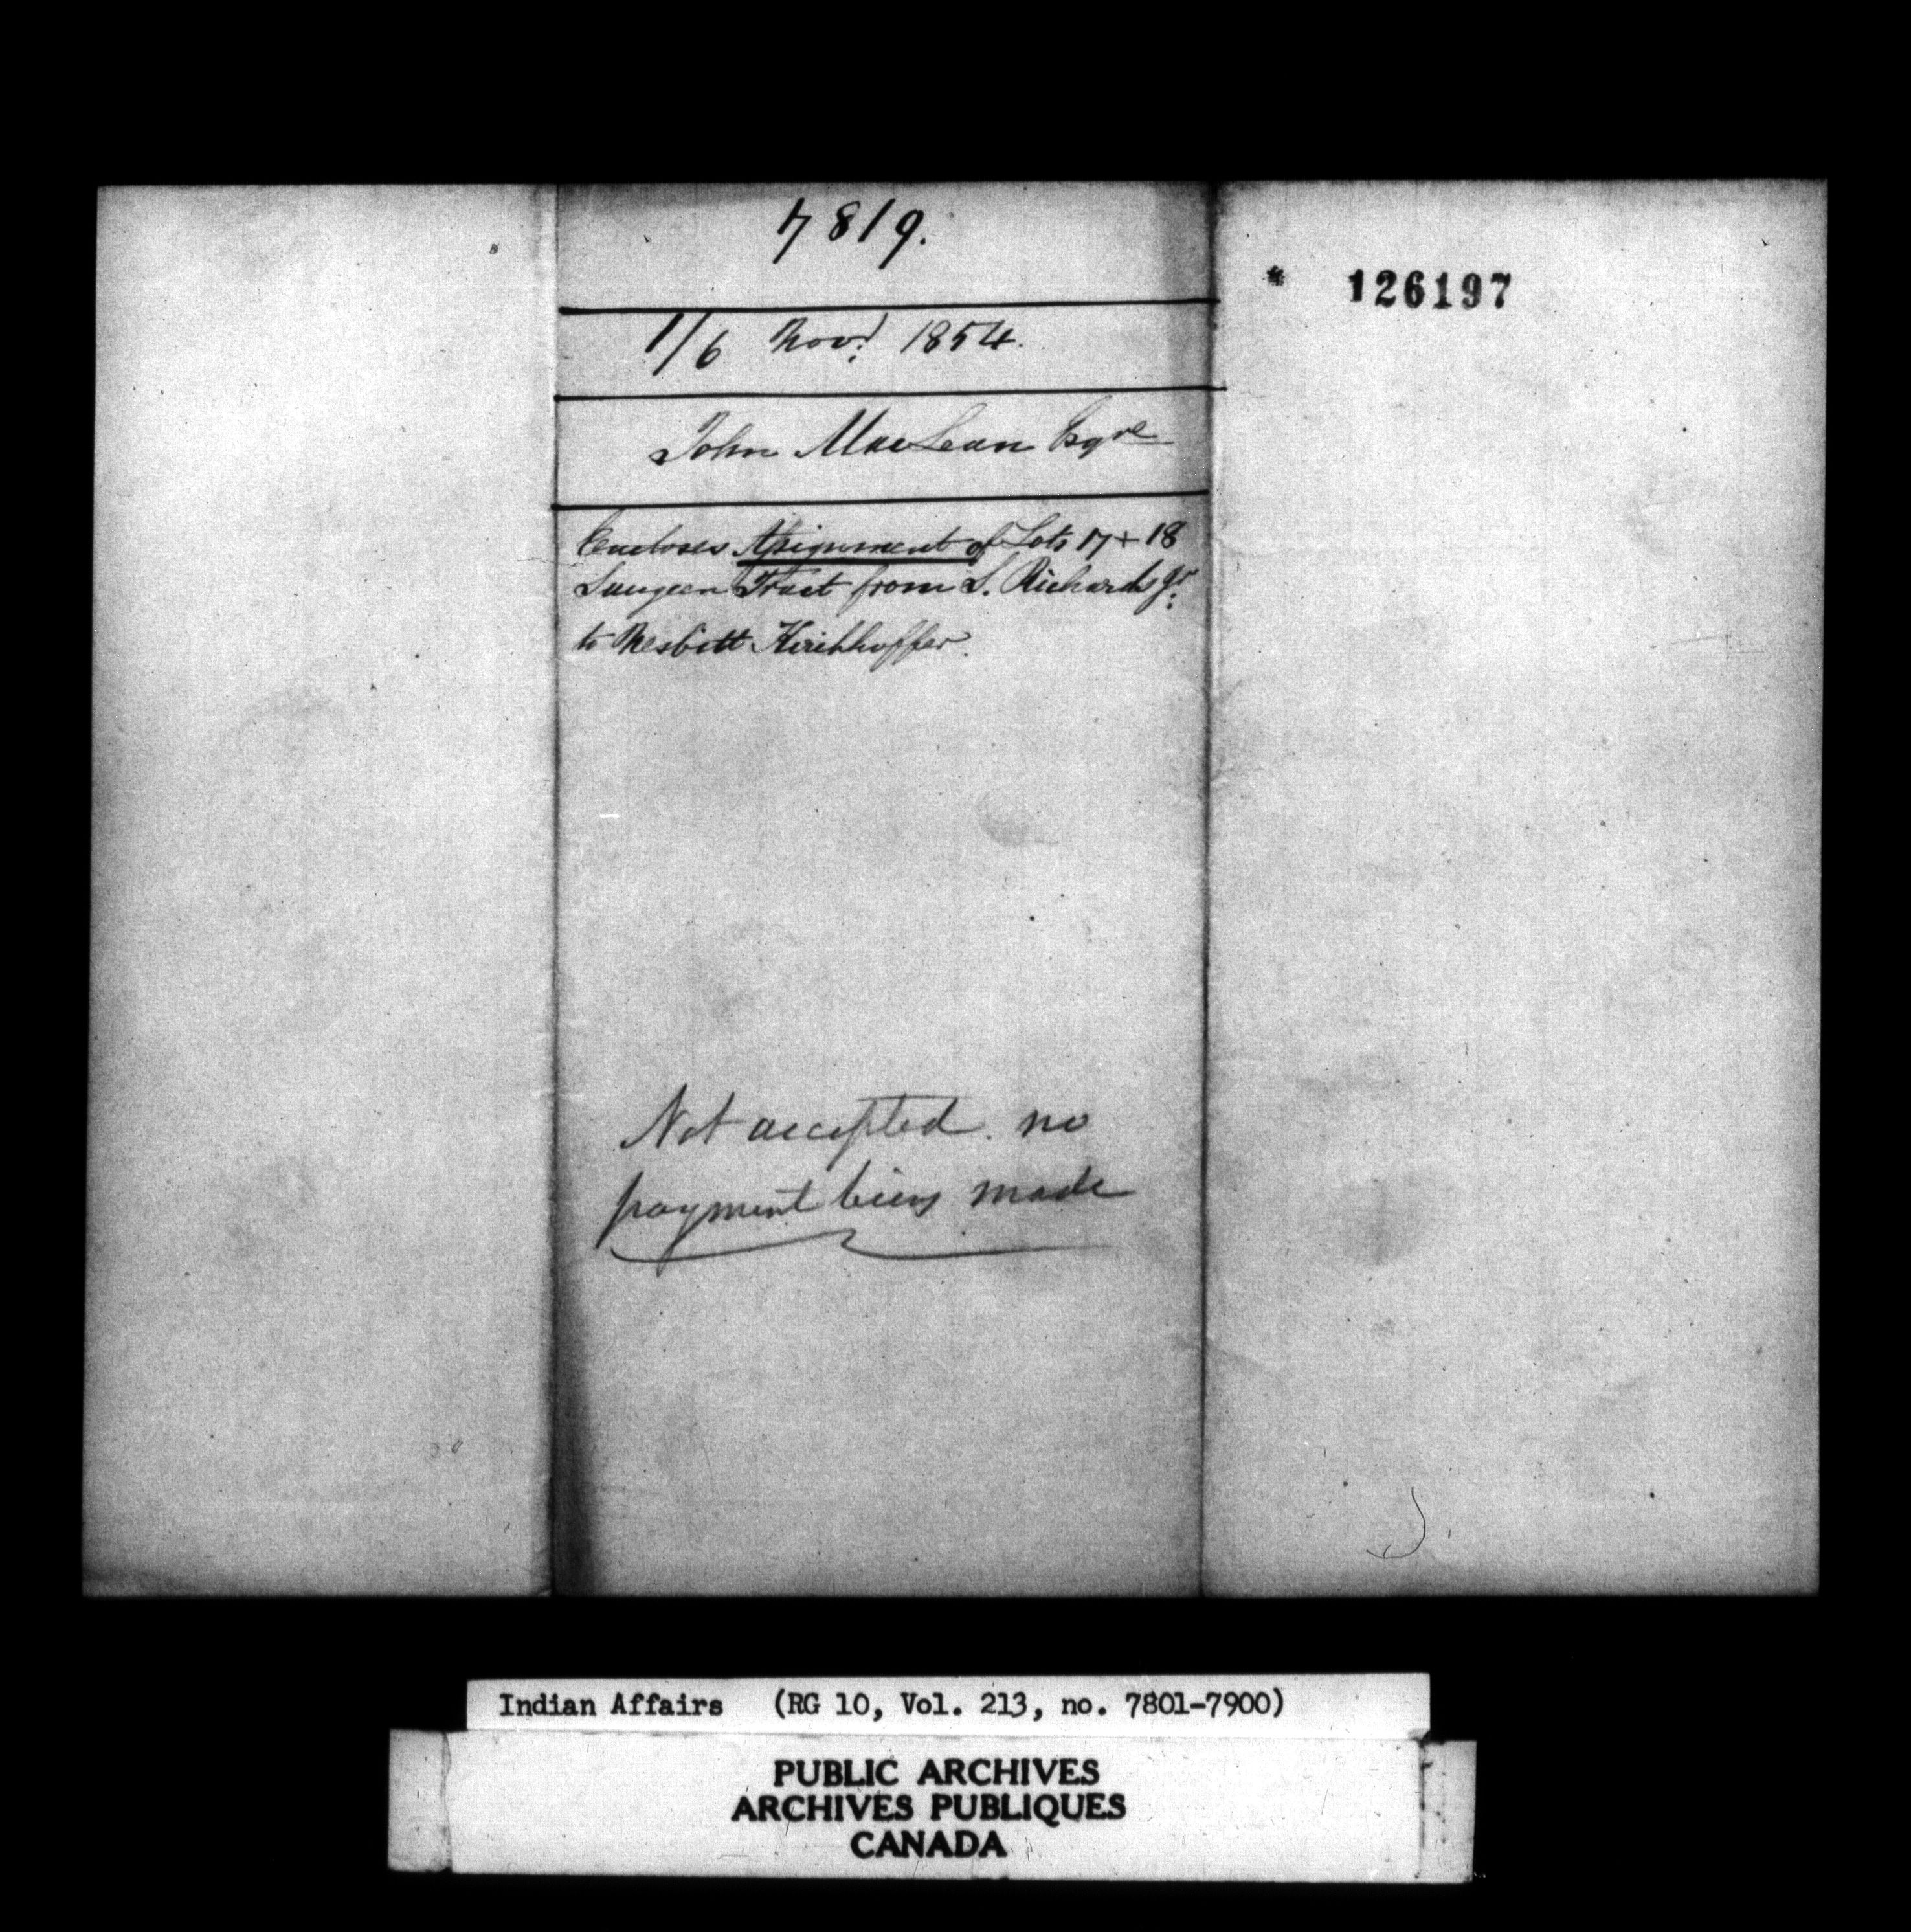 7819.
1/6 Novr. 1854.
John MacLean Esqre
Encloses Assignment of Lots 17 + 18
Saugeen Tract from S. Richards Jr.
to Nesbitt Kirchhoffer.
Not accepted. no
payment being made
* 126197
Indian Affairs (RG 10, Vol. 213, no. 7801-7900)
PUBLIC ARCHIVES
ARCHIVES PUBLIQUES
CANADA